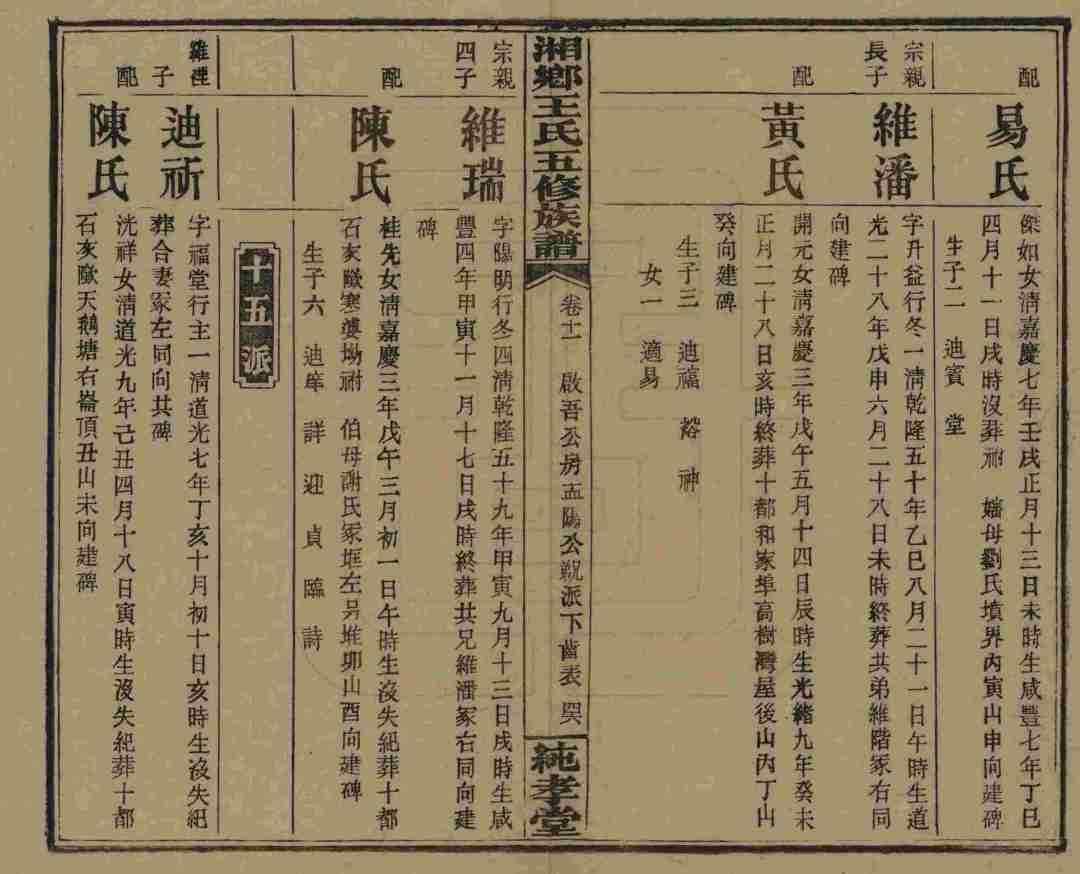 配
易氏
傑如女淸嘉慶七年壬戌正月十三日未時生咸豐七年丁巳
四月十一日戌時沒葬祔　嬸母劉氏墳界內寅山申向建碑
生子二　迪賓　堂
宗親
長子
維潘
字升益行冬一淸乾隆五十年乙巳八月二十一日午時生道
光二十八年戊申六月二十八日未時終葬共弟維階冢右同
向建碑
配
黃氏
開元女淸嘉慶三年戊午五月十四日辰時生光緒九年癸未
正月二十八日亥時終葬十都和家埠高樹灣屋後山丙丁山
癸向建碑
生子三　迪福　裕　神
女一　適易
湘鄉王氏五修族譜
卷十一　啟吾公房孟陽公親派下齒表
純孝堂
宗親
四子
維瑞
字陽明行冬四淸乾隆五十九年甲寅九月十三日戌時生咸
豐四年甲寅十一月十七日戌時終葬共兄維潘冢右同向建
碑
配
陳氏
桂先女淸嘉慶三年戊午三月初一日午時生沒失紀葬十都
石亥歐寒婆坳祔　伯母謝氏冢堐左另堆卯山酉向建碑
生子六　迪庠　詳　迎　貞　臨　詩
十五派
維湮
子
迪祈
字福堂行主一淸道光七年丁亥十月初十日亥時生沒失紀
葬合妻冢左同向共碑
配
陳氏
洸祥女淸道光九年己丑四月十八日寅時生沒失紀葬十都
石亥歐天鵝塘右崙頂丑山未向建碑